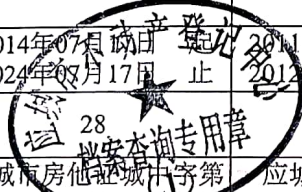 014年07月 日 起 2011
024年07月17日 止 2012
应城市不动产登记
28
档案查询专用章
城市房他证城中字第 应城